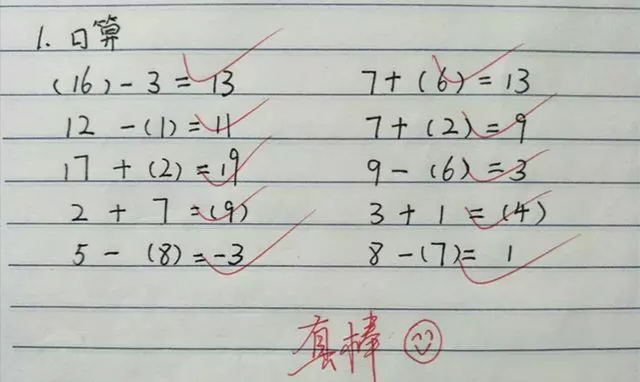 1. 口算
(16) - 3 = 13 7 + (6) = 13
12 - (1) = 11 7 + (2) = 9
17 + (2) = 19 9 - (6) = 3
2 + 7 = (9) 3 + 1 = (4)
5 - (8) = -3 8 - (7) = 1
真棒